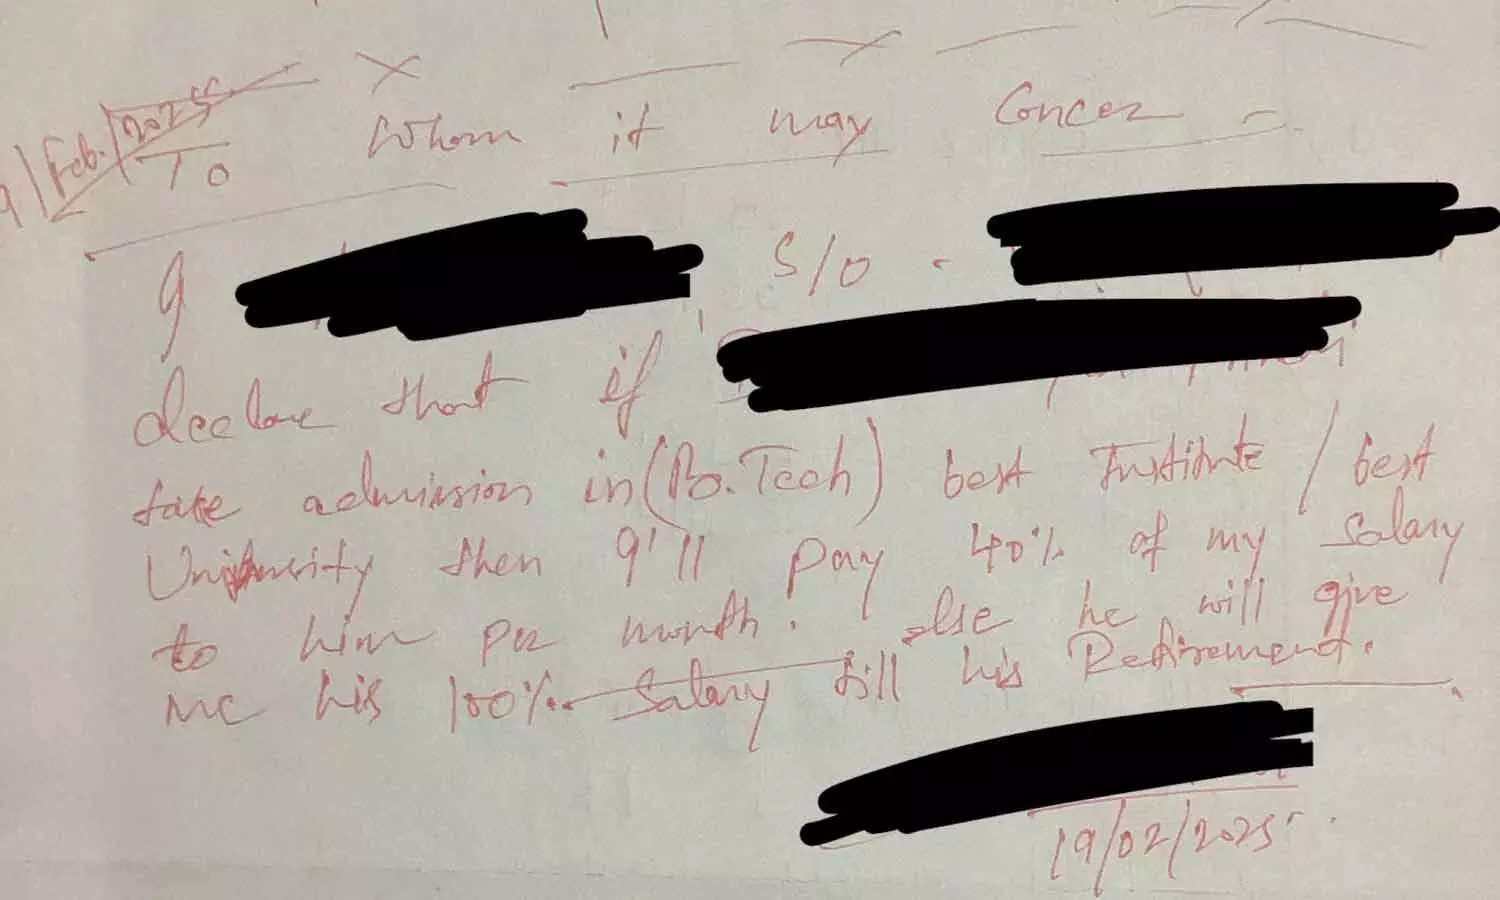 9/Feb./2025
To Whom it may Concer
I S/O.
declare that if
take admission in (B.Tech) best Institute / best
University then I'll pay 40% of my Salary
to him per month. else he will give
me his 100% Salary till his Retirement.
19/02/2025